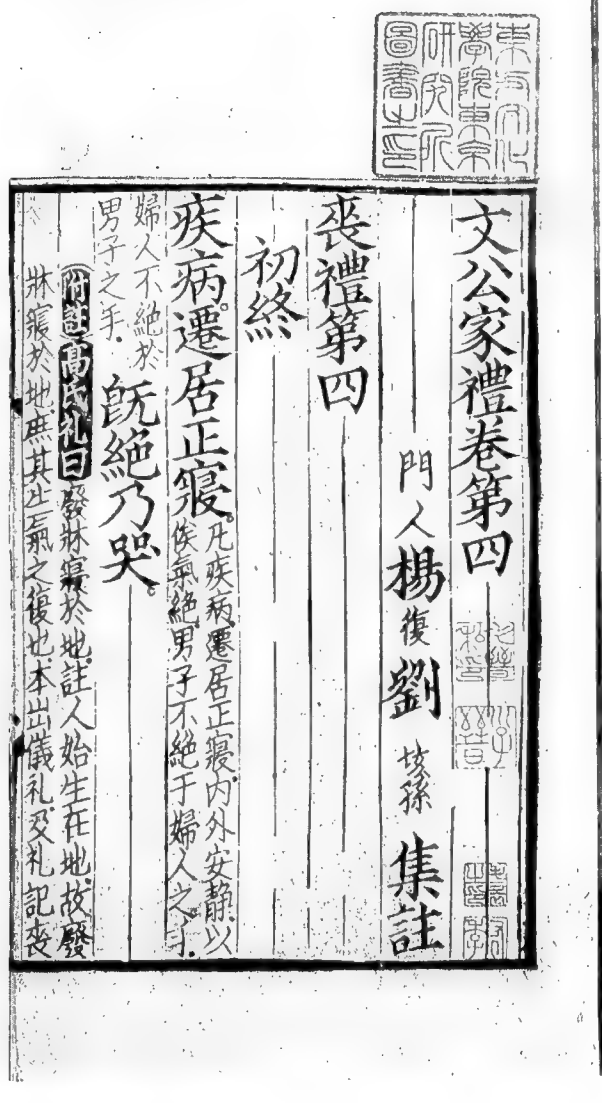 東方文化
學院東京
研究所
圖書之印
文公家禮卷第四
門人楊復劉垓孫集註
喪禮第四
初終
疾病遷居正寢。凡疾病遷居正寢内外安靜以
俟氣絶男子不絶于婦人之手
婦人不絶於
男子之手. 旣絶乃哭。
附註高氏礼曰廢牀寢於地註人始生在地故廢
牀寢於地庶其生氣之復也本出儀礼及礼記喪